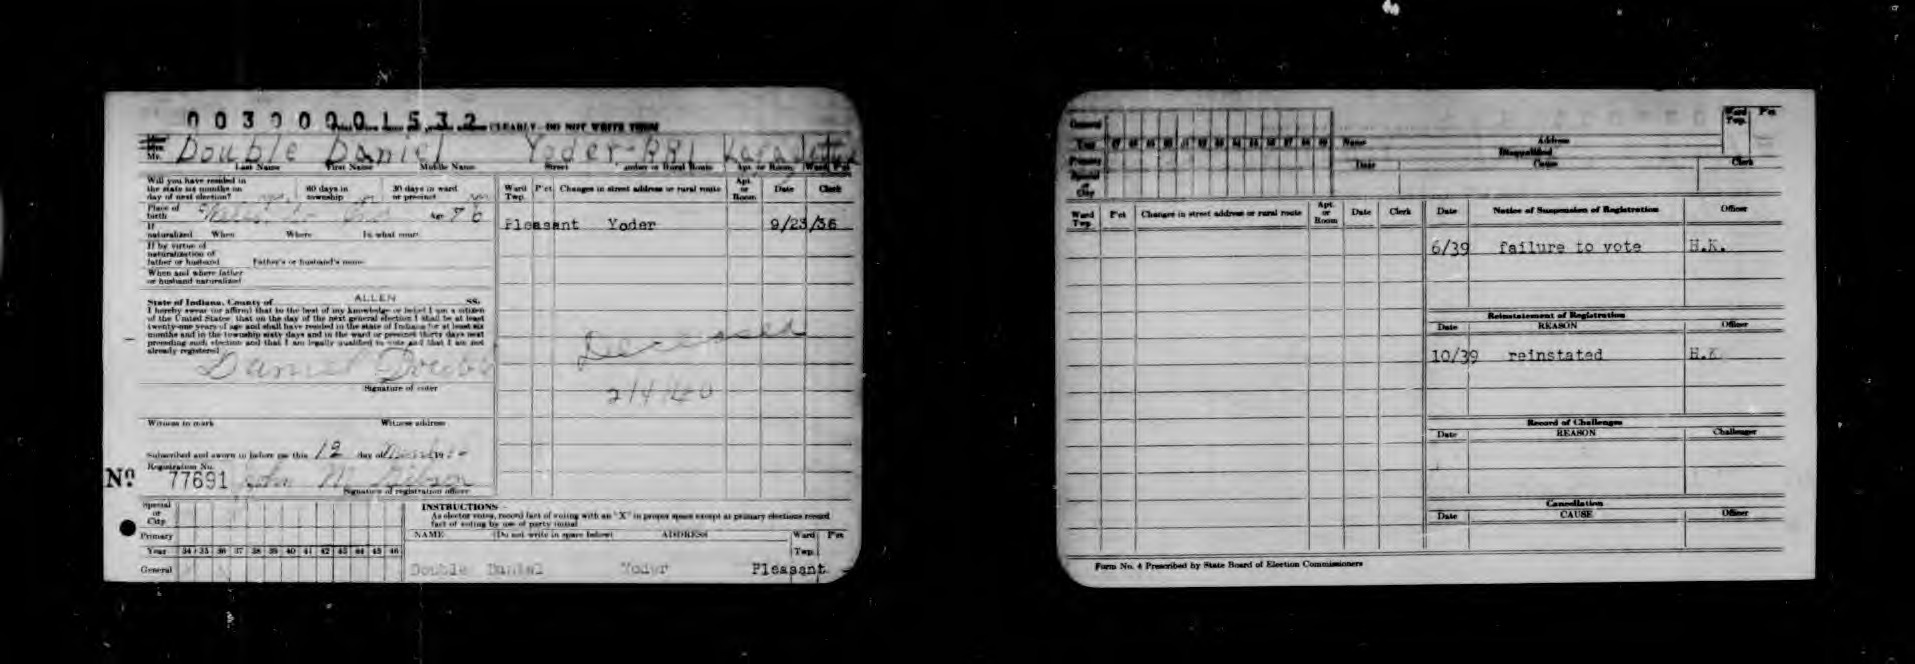 003000001532
CLEARLY - DO NOT WRITE THEM
Mr. Double Daniel Yoder-RR1
Last Name First Name Middle Name Street number or Rural Route Apt. or Room Ward P'ct
Will you have resided in
the state six months on 60 days in 30 days in ward
day of next election? township or precinct
Place of
birth Age 76
If
naturalized When Where In what court
If by virtue of
naturalization of
father or husband Father's or husband's name
When and where father
or husband naturalized
State of Indiana, County of ALLEN SS.
I hereby swear (or affirm) that to the best of my knowledge or belief I am a citizen
of the United States; that on the day of the next general election I shall be at least
twenty-one years of age and shall have resided in the state of Indiana for at least six
months and in the township sixty days and in the ward or precinct thirty days next
preceding such election and that I am legally qualified to vote and that I am not
already registered
Daniel Double
Signature of voter
Witness to mark Witness address
Subscribed and sworn to before me this 12 day of 19
Registration No.
No. 77691 John M. Gibson
Signature of registration officer
Special
or
City
Primary
Year 34 35 36 37 38 39 40 41 42 43 44 45 46
General
Ward Twp. P'ct Changes in street address or rural route Apt. or Room Date Clerk
Pleasant Yoder 9/23/36
Deceased
2/4/40
INSTRUCTIONS -
As elector votes, record fact of voting with an "X" in proper space except at primary elections record
fact of voting by use of party initial
NAME (Do not write in space below) ADDRESS Ward P'ct
Twp.
Double Daniel Yoder Pleasant
General
Year 47 48 49 50 51 52 53 54 55 56 57 58 59
Primary
Special
or
City
Name Address Ward Twp. P'ct
Disqualified
Date Cause Clerk
Ward Twp. P'ct Changes in street address or rural route Apt. or Room Date Clerk
Date Notice of Suspension of Registration Officer
6/39 failure to vote H.K.
Reinstatement of Registration
Date REASON Officer
10/39 reinstated H.K.
Record of Challenges
Date REASON Challenger
Cancellation
Date CAUSE Officer
Form No. 4 Prescribed by State Board of Election Commissioners